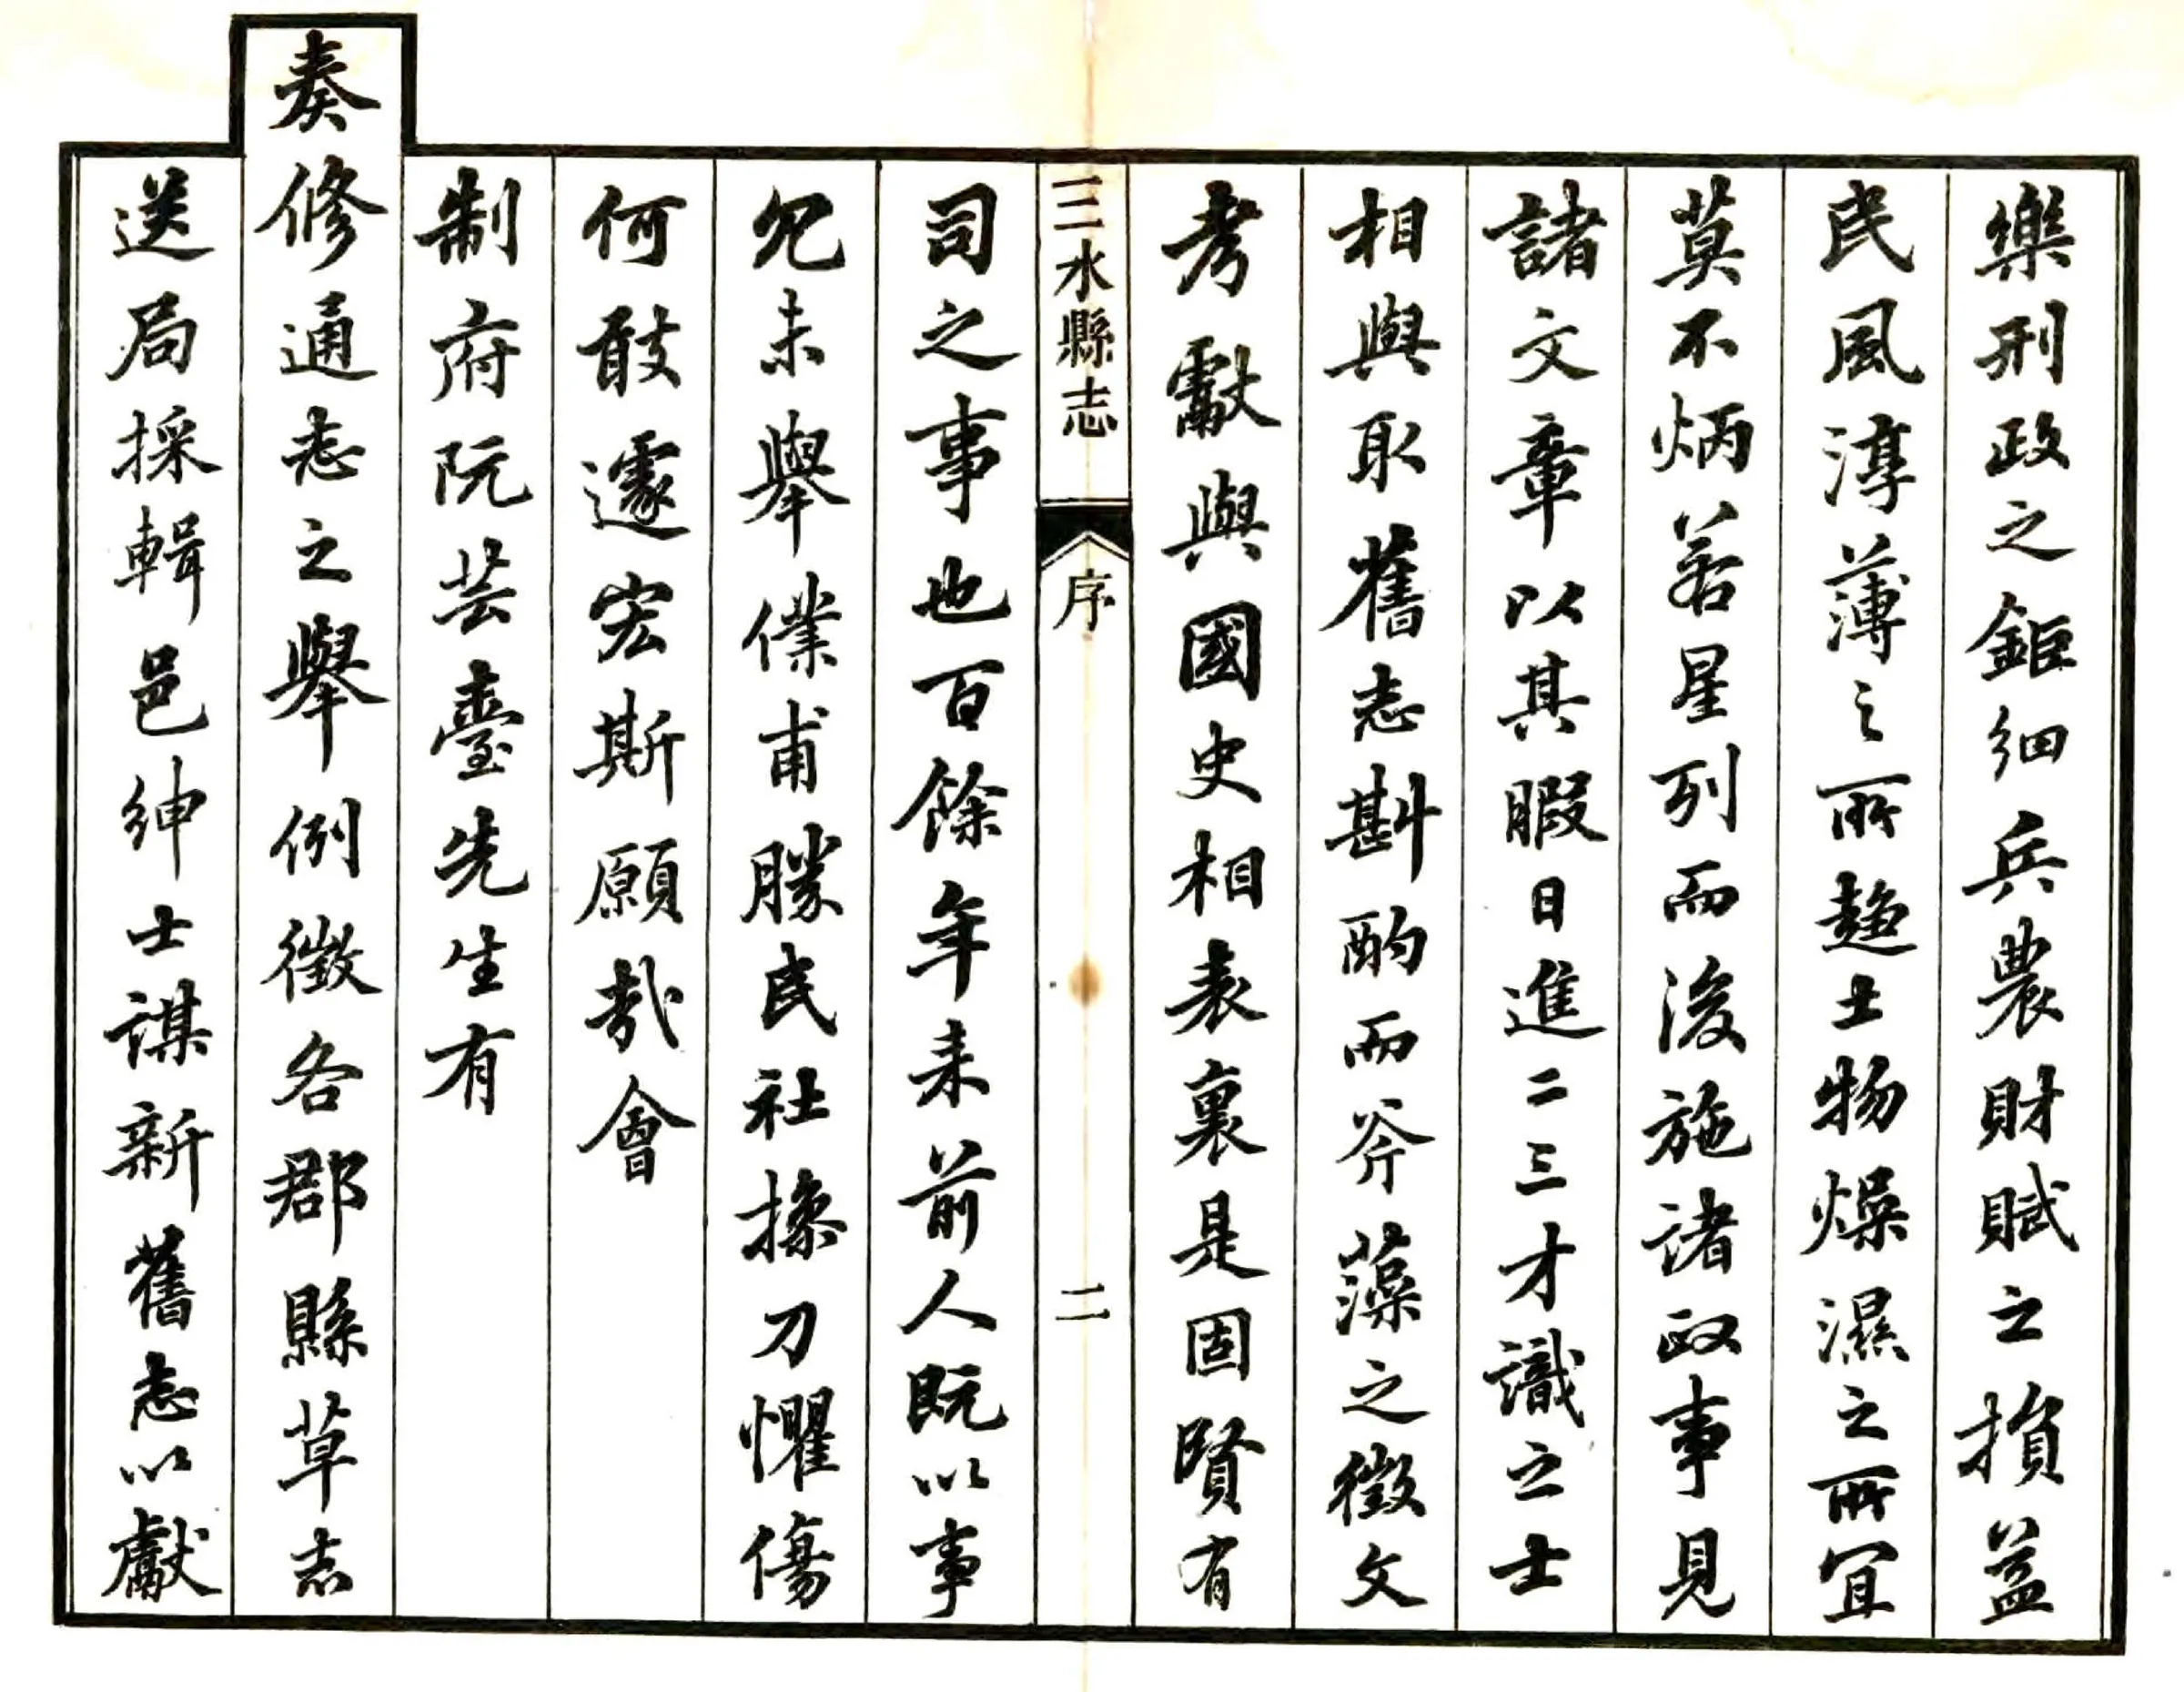 樂刑政之鉅細兵農財賦之損益
民風淳薄之所趨土物燥濕之所宜
莫不炳若星列而後施諸政事見
諸文章以其暇日進二三才識之士
相與取舊志斟酌而斧藻之徵文
考獻與國史相表裏是固賢有
三水縣志
序
二
司之事也百餘年來前人既以事
冗未舉僕甫勝民社操刀懼傷
何敢遽宏斯願哉會
制府阮芸臺先生有
奏修通志之舉例徵各郡縣草志
送局採輯邑紳士謀新舊志以獻